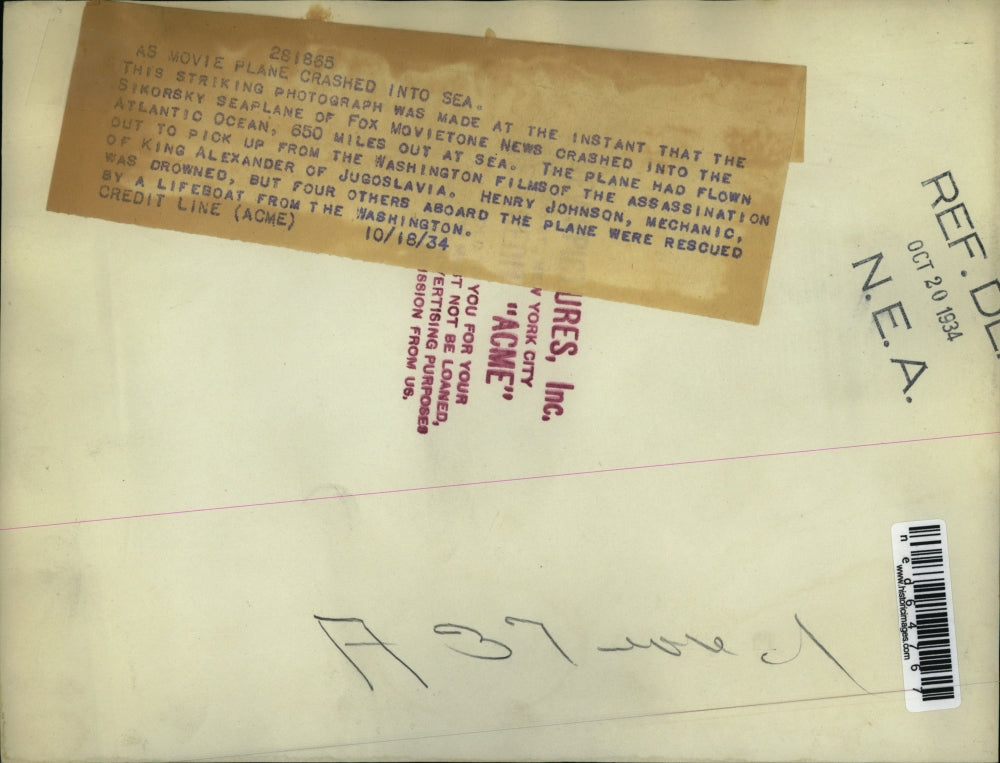 281865
AS MOVIE PLANE CRASHED INTO SEA.
THIS STRIKING PHOTOGRAPH WAS MADE AT THE INSTANT THAT THE
SIKORSKY SEAPLANE OF FOX MOVIETONE NEWS CRASHED INTO THE
ATLANTIC OCEAN, 650 MILES OUT AT SEA. THE PLANE HAD FLOWN
OUT TO PICK UP FROM THE WASHINGTON FILMSOF THE ASSASSINATION
OF KING ALEXANDER OF JUGOSLAVIA. HENRY JOHNSON, MECHANIC,
WAS DROWNED, BUT FOUR OTHERS ABOARD THE PLANE WERE RESCUED
BY A LIFEBOAT FROM THE WASHINGTON.
CREDIT LINE (ACME) 10/18/34
URES, Inc.
YORK CITY
"ACME"
YOU FOR YOUR
T NOT BE LOANED,
ERTISING PURPOSES
ISSION FROM US.
REF. DE
OCT 20 1934
N. E. A.
ned64767
www.historicimages.com
A 37